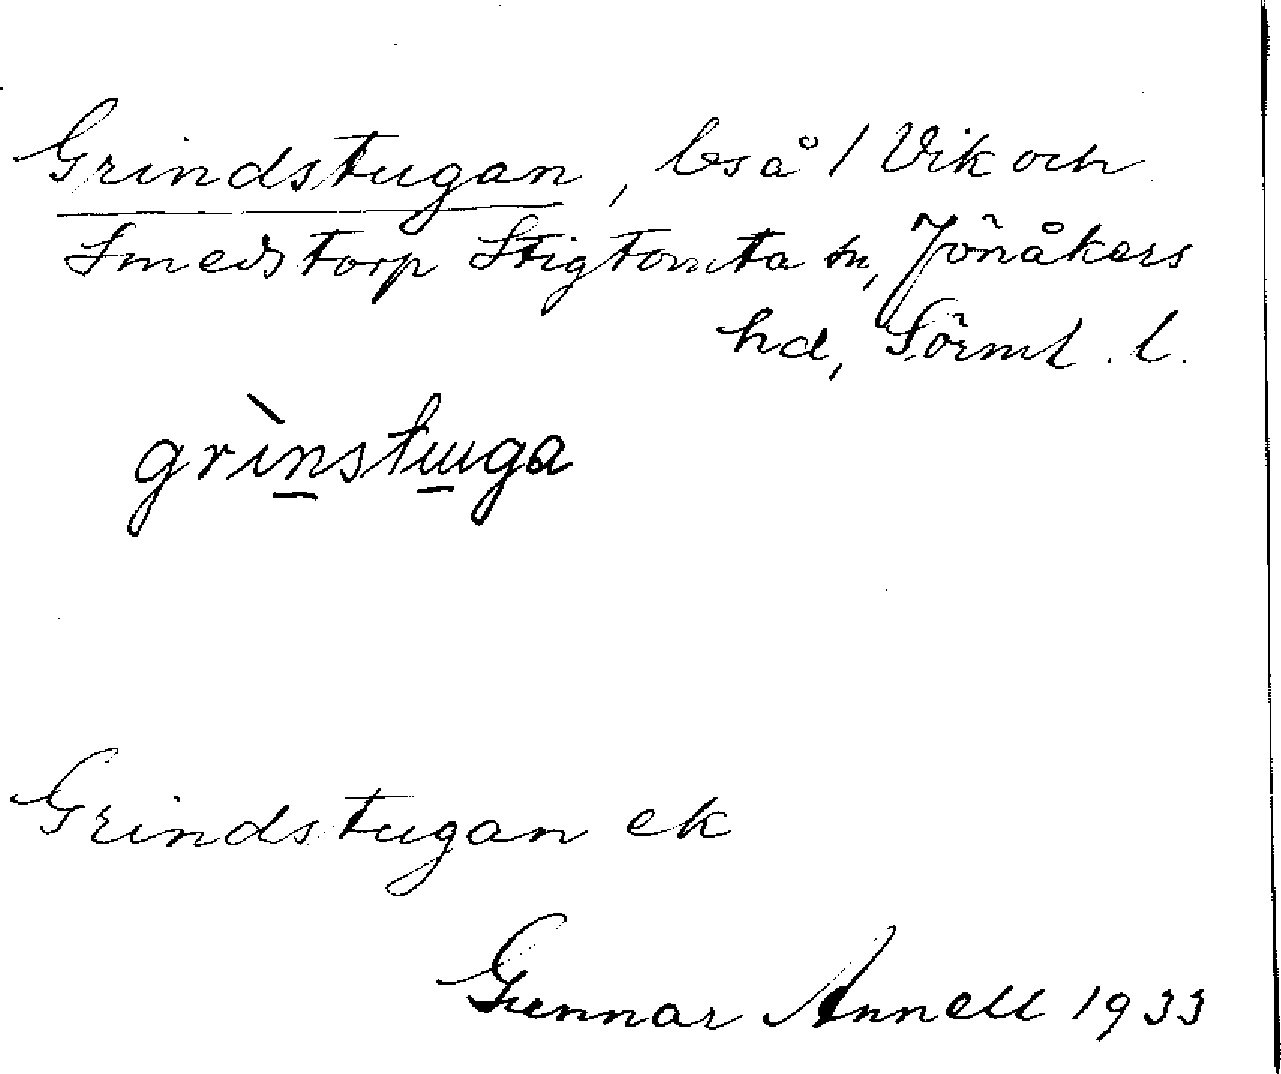 Grindstugan, lså / Vik och
Smedstorp Stigtomta sn, Jönåkers
hd, Sörml. l.
grìnstuga
Grindstugan ek
Gunnar Annell 1933